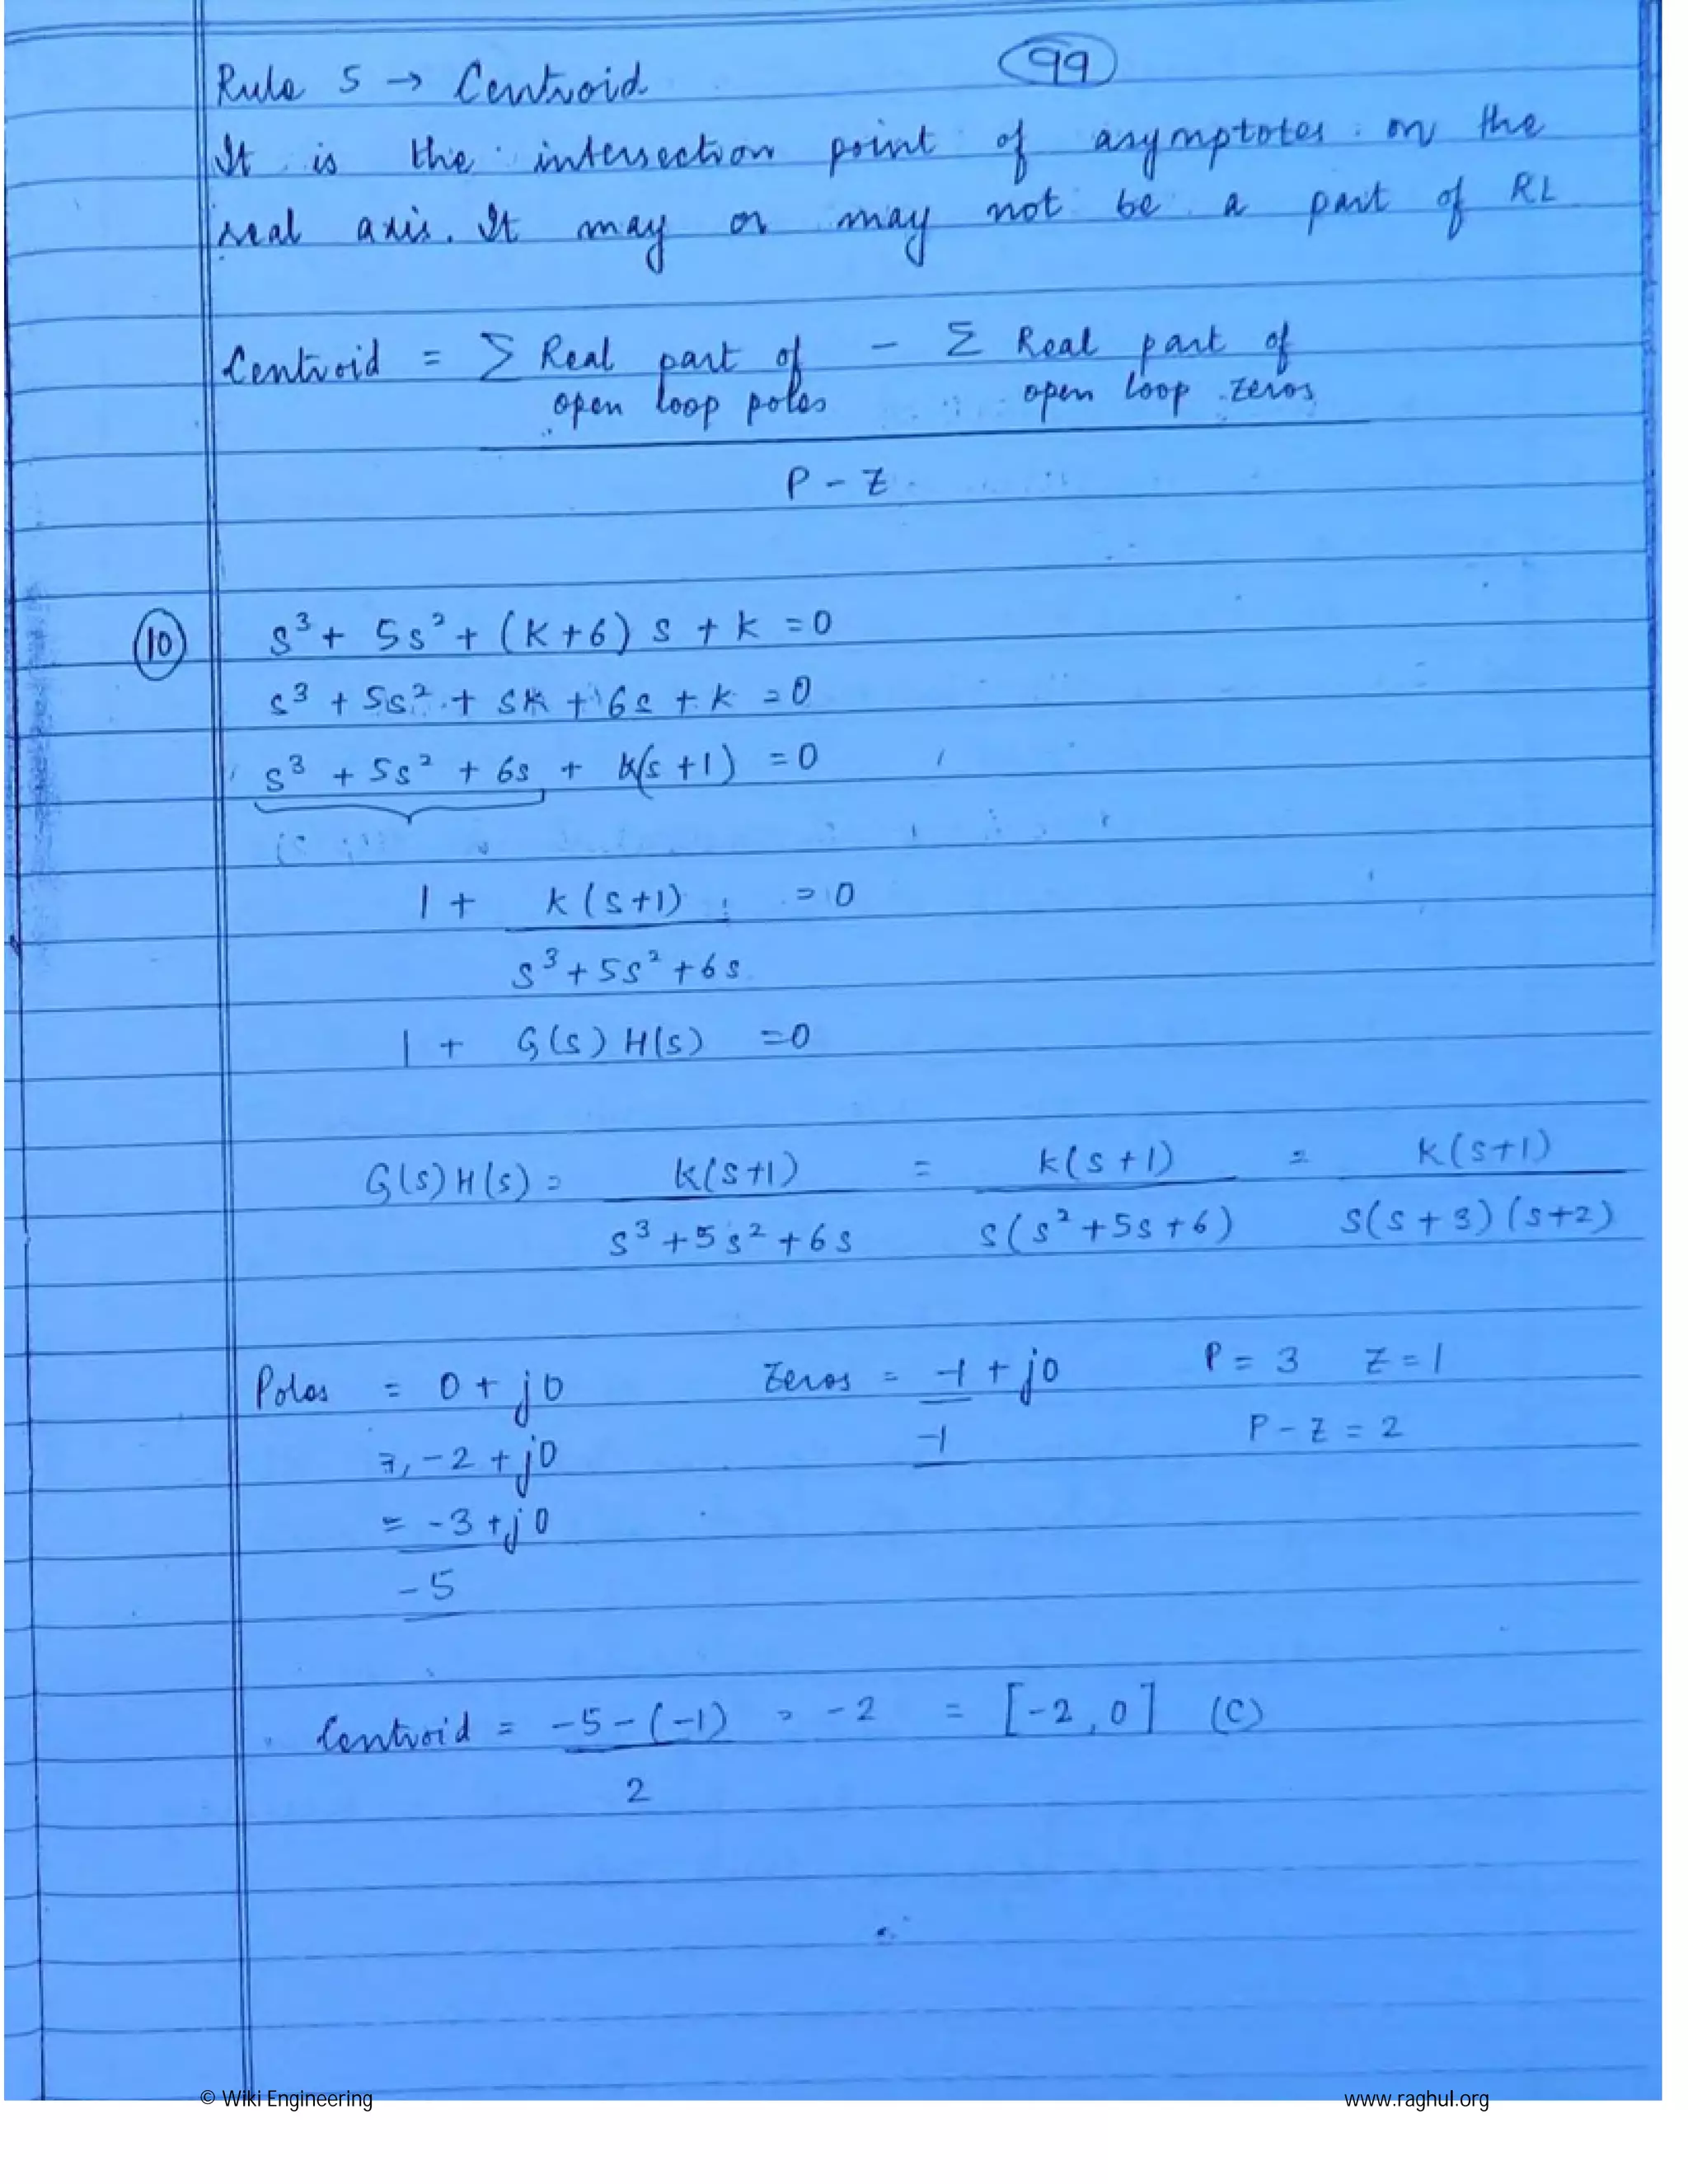 99
Rule 5 → Centroid
It is the intersection point of asymptotes on the
real axis. It may or may not be a part of RL
Centroid = Σ Real part of open loop poles − Σ Real part of open loop zeros
P - Z
10
s³ + 5s² + (K+6) s + k = 0
s³ + 5s² + sk + 6s + k = 0
s³ + 5s² + 6s + k(s+1) = 0
1 + k(s+1) = 0
s³+5s²+6s
1 + G(s) H(s) = 0
G(s)H(s) = k(s+1) = k(s+1) = k(s+1)
s³+5s²+6s s(s²+5s+6) s(s+3)(s+2)
Poles = 0 + j0 Zeros = -1 + j0 P = 3 Z = 1
-2 + j0 -1 P - Z = 2
= -3 + j0
-5
Centroid = -5-(-1) = -2 = [-2, 0] (C)
2
© Wiki Engineering www.raghul.org